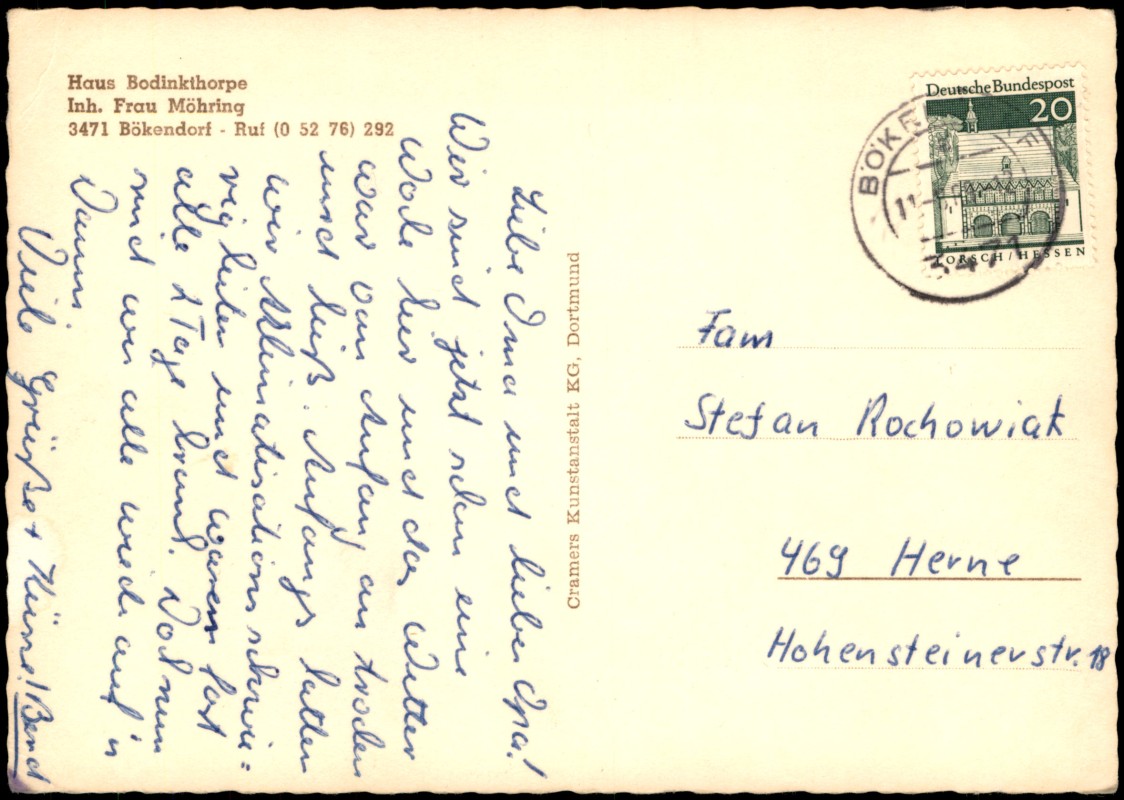 Haus Bodinkthorpe
Inh. Frau Möhring
3471 Bökendorf - Ruf (0 52 76) 292
Liebe Oma und lieber Opa!
Wir sind jetzt schon eine
Woche hier und das Wetter
war von Anfang an trocken
und heiß. Anfangs hatten
wir Aklimatisationsschwie=
rigkeiten und waren fast
alle 2 Tage krank. Doch nun
sind wir alle wieder auf'm
Damm.
Viele Grüße + Küsse! Bernd
Cramers Kunstanstalt KG, Dortmund
Deutsche Bundespost
20
LORSCH/HESSEN
3471
Fam
Stefan Rochowiak
469 Herne
Hohensteinerstr. 18